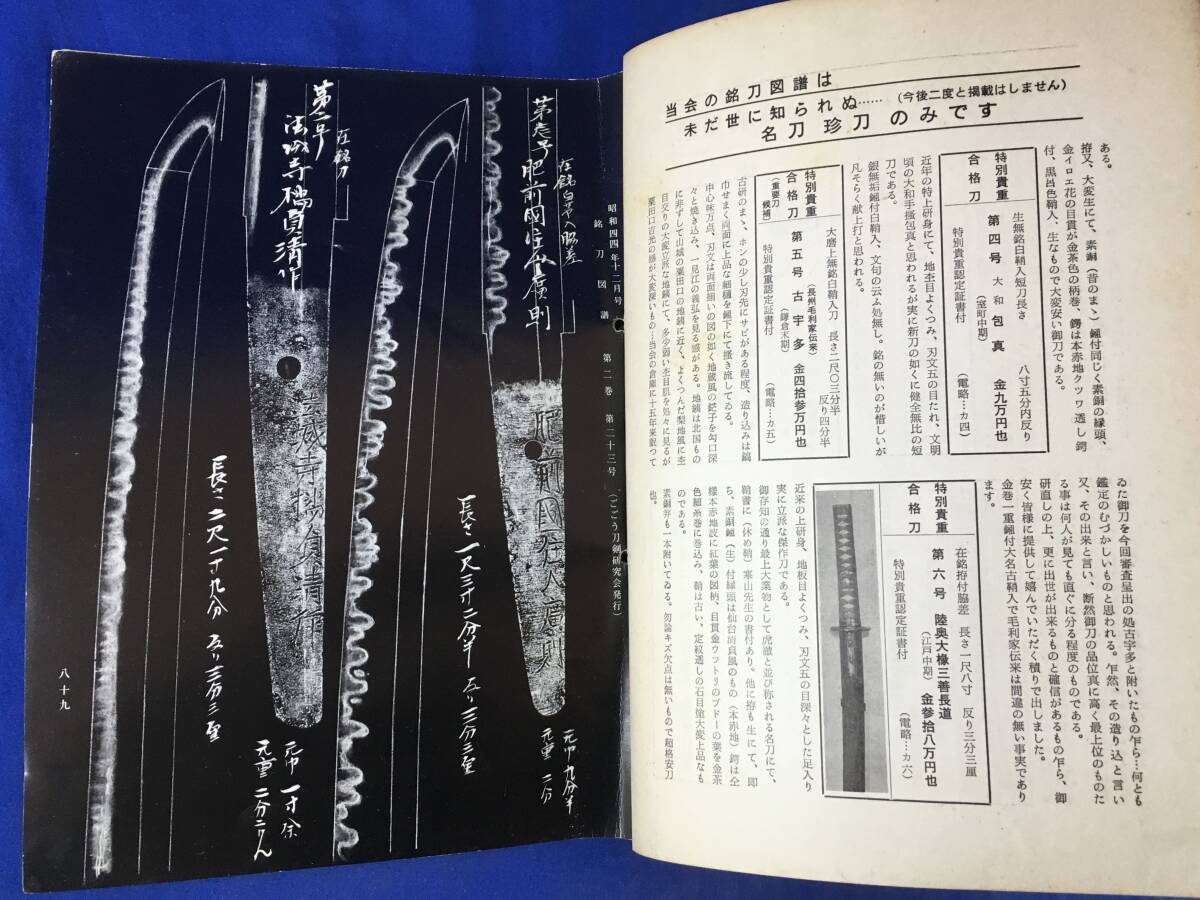 当会の銘刀図譜は
未だ世に知られぬ……（今後二度と掲載はしません）
名刀珍刀のみです
ある。
拵又、大変生にて、素銅（昔のまゝ）鎺付同じく素銅の縁頭、
金イロエ花の目貫が金茶色の柄巻、鍔は本赤地クツワ透し鍔
付、黒呂色鞘入、生なもので大変安い御刀である。
特別貴重
合格刀
生無銘白鞘入短刀長さ 八寸五分内反り
第四号 大和包真 金九万円也
（室町中期）
特別貴重認定証書付 （電略…カ四）
近年の特上研身にて、地杢目よくつみ、刃文五の目たれ、文明
頃の大和手掻包真と思われるが実に新刀の如くに健全無比の短
刀である。
銀無垢鎺付白鞘入、文句の云ふ処無し。銘の無いのが惜しいが
凡そらく献上打と思われる。
特別貴重
合格刀
（重要刀候補）
大磨上無銘白鞘入刀 長さ二尺〇三分半
反り四分半
（長州毛利家伝来）
第五号 古宇多 金四拾参万円也
（鎌倉末期）
特別貴重認定証書付 （電略…カ五）
古研のまゝ、ホンの少し刃先にサビがある程度、造り込みは鎬
巾せまく両面に上品な細樋を鎺下にて掻き流してゐる。
中心味万点、刃文は両面揃いの図の如く地蔵風の鋩子を匂口深
々と焼き込み、一見江の義弘を見る感がある。地鉄は北国もの
に非ずして山城の粟田口の地鉄に近く、よくつんだ梨地風に杢
目交りの大変立派な地鉄にて、多少弱い杢目肌を処々に見るが
粟田口吉光の感が大変深いもの…当会の倉庫に十五年来眠って
ゐた御刀を今回審査呈出の処古宇多と附いたもの乍ら…何とも
鑑定のむづかしいものと思われる。乍然、その造り込と言い
又、その出来と言い、断然御刀の品位真に高く最上位のものた
る事は何人が見ても直ぐに分る程度のものである。
研直しの上、更に出世が出来るものと確信があるもの乍ら、御
安く皆様に提供して嬉んでいただく積りで出しました。
金巻一重鎺付大名古鞘入で毛利家伝来は間違の無い事実であり
ます。
特別貴重
合格刀
在銘拵付脇差 長さ一尺八寸 反り三分三厘
第六号 陸奥大椽三善長道
（江戸中期） 金参拾八万円也
特別貴重認定証書付 （電略…カ六）
近来の上研身、地板目よくつみ、刃文五の目深々とした足入り
実に立派な傑作刀である。
御存知の通り最上大業物として虎徹と並び称される名刀にて、
鞘書に（休め鞘）寒山先生の書付あり。他に拵も生にて、即
ち、素銅鎺（生）付縁頭は仙台清貞風のもの（本赤地）鍔は仝
様本赤地波に紅葉の図柄、目貫金ウットリのブドーの葉を金茶
色細糸巻に巻込み、鞘は古い、定紋透しの石目塗大変上品なも
のである。
素銅笄も一本附いてゐる。勿論キズ欠点は無いもので超格安刀
也。
昭和四四年十二月号 銘刀図譜 第二巻 第二十三号 （ごごう刀剣研究会発行）
第壱号
在銘白鞘入脇差
肥前國住人廣則
肥前國住人廣則
長さ 一尺三寸二分半 反り 三分三厘
元巾 九分半
元重 二分
第二号
在銘刀
法城寺橘貞清作
法城寺橘貞清作
長さ 二尺一寸九分 反り 三分三厘
元巾 一寸余
元重 二分二りん
八十九